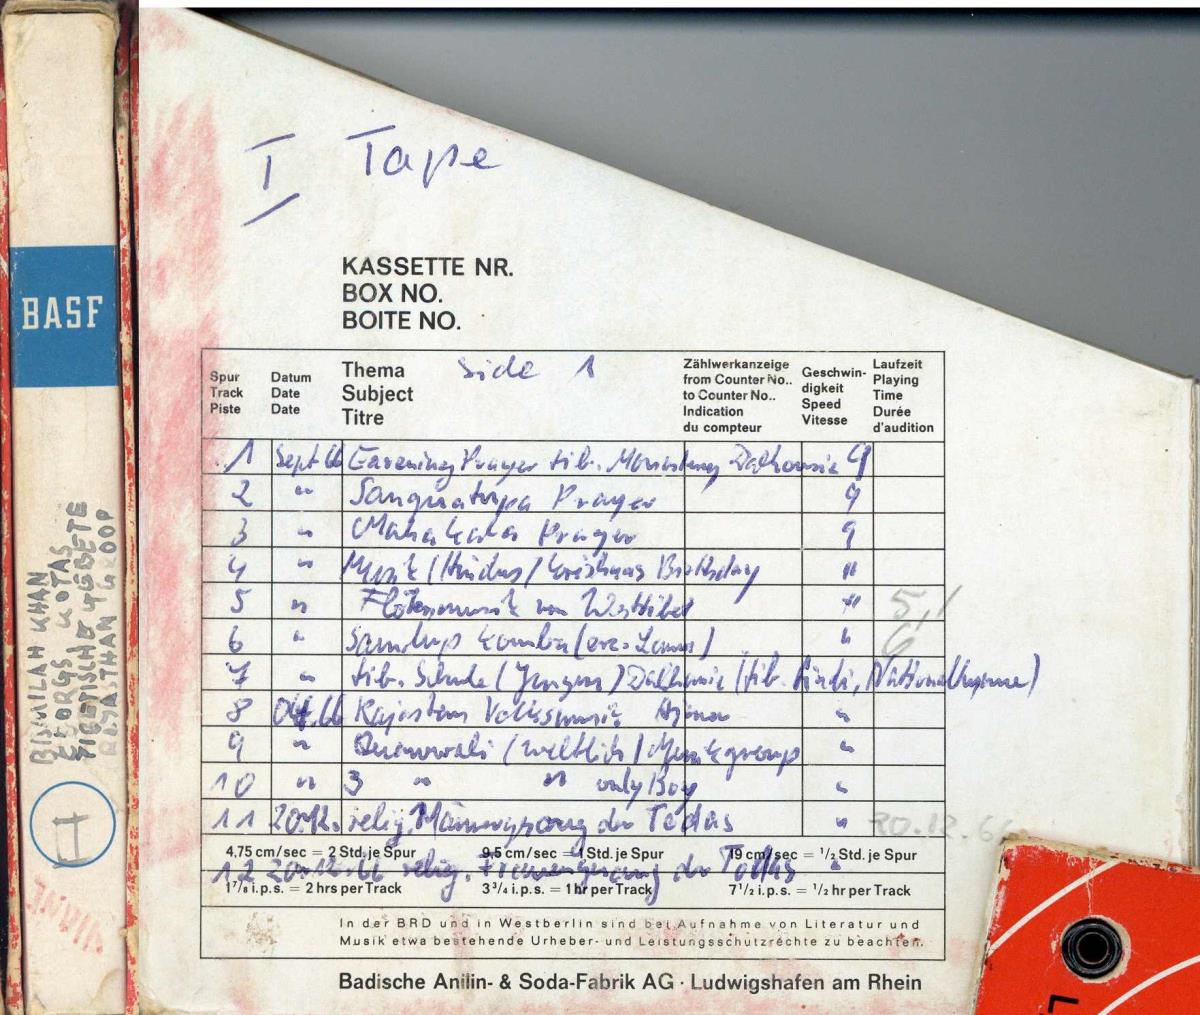 BASF
BISMILAH KHAN
GEORGS, KOTAS
TIBETISCHE GEBETE
RAJASTHAN GROOP
I
I Tape
KASSETTE NR.
BOX NO.
BOITE NO.
Spur
Track
Piste
Datum
Date
Date
Thema
Subject
Titre
Side 1
Zählwerkanzeige
from Counter No..
to Counter No..
Indication
du compteur
Geschwin-
digkeit
Speed
Vitesse
Laufzeit
Playing
Time
Durée
d'audition
1 Sept. 66 Prayer tib. Dalhousie 9
2 " Prayer 9
3 " Mahakala Prayer 9
4 " Musik (Hindus) Birthday "
5 " Flötenmusik von Westtibet " 5,1
6 " " 6
7 " tib. Schule (Jungen) Dalhousie (tib. Hindi, Nationalhymne)
8 Okt. 66 Volksmusik "
9 " (weltlich) Musikgroup "
10 " 3 " " only Boy "
11 20.12. relig. Männergesang der Todas " 20.12.66
4,75 cm/sec = 2 Std. je Spur 9,5 cm/sec = 1 Std. je Spur 19 cm/sec = ½ Std. je Spur
12 20.12.66 relig. Frauengesang der Todas
1⅞ i.p.s. = 2 hrs per Track 3¾ i.p.s. = 1 hr per Track 7½ i.p.s. = ½ hr per Track
In der BRD und in Westberlin sind bei Aufnahme von Literatur und
Musik etwa bestehende Urheber- und Leistungsschutzrechte zu beachten.
Badische Anilin- & Soda-Fabrik AG · Ludwigshafen am Rhein